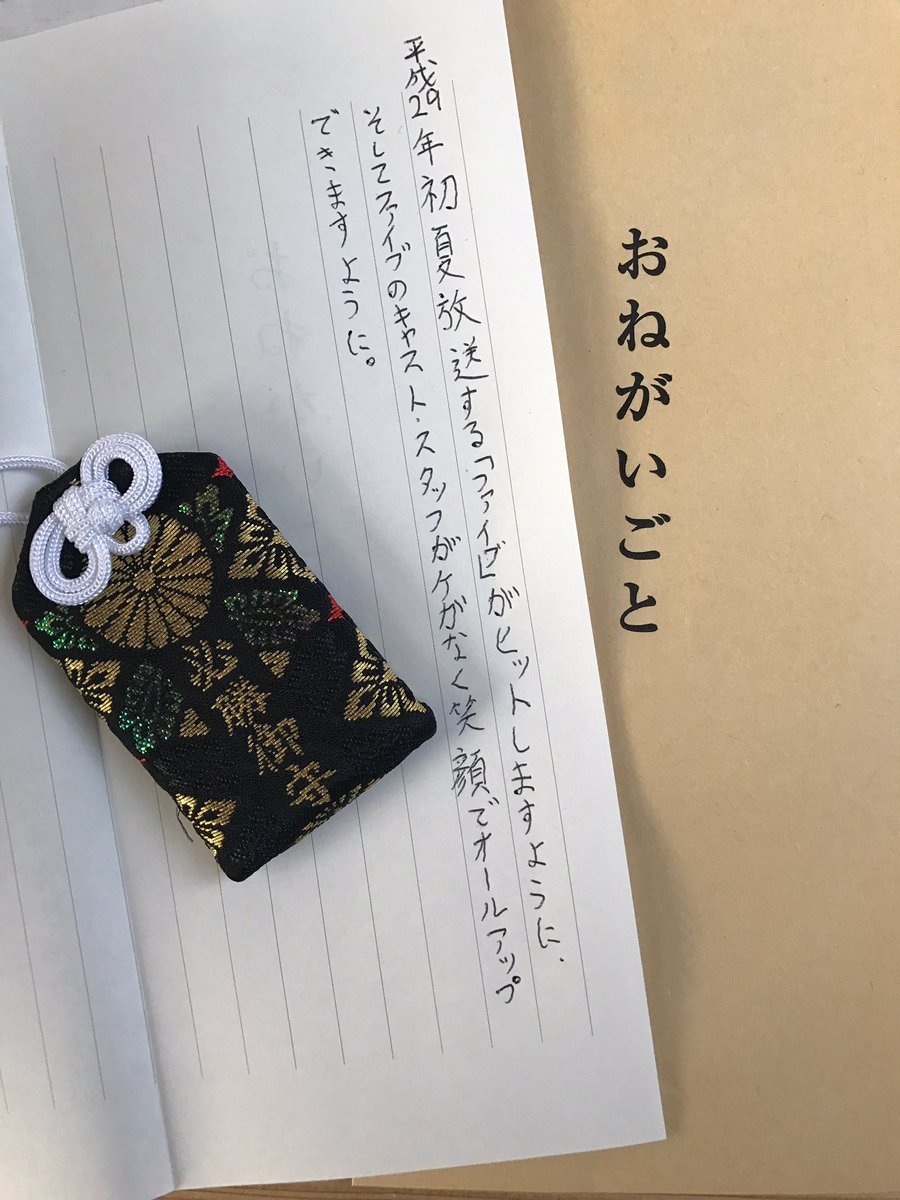 おねがいごと
平成29年初夏放送する「ファイブ」がヒットしますように.
そしてファイブのキャスト・スタッフがケガなく笑顔でオールアップ
できますように。
必勝御守